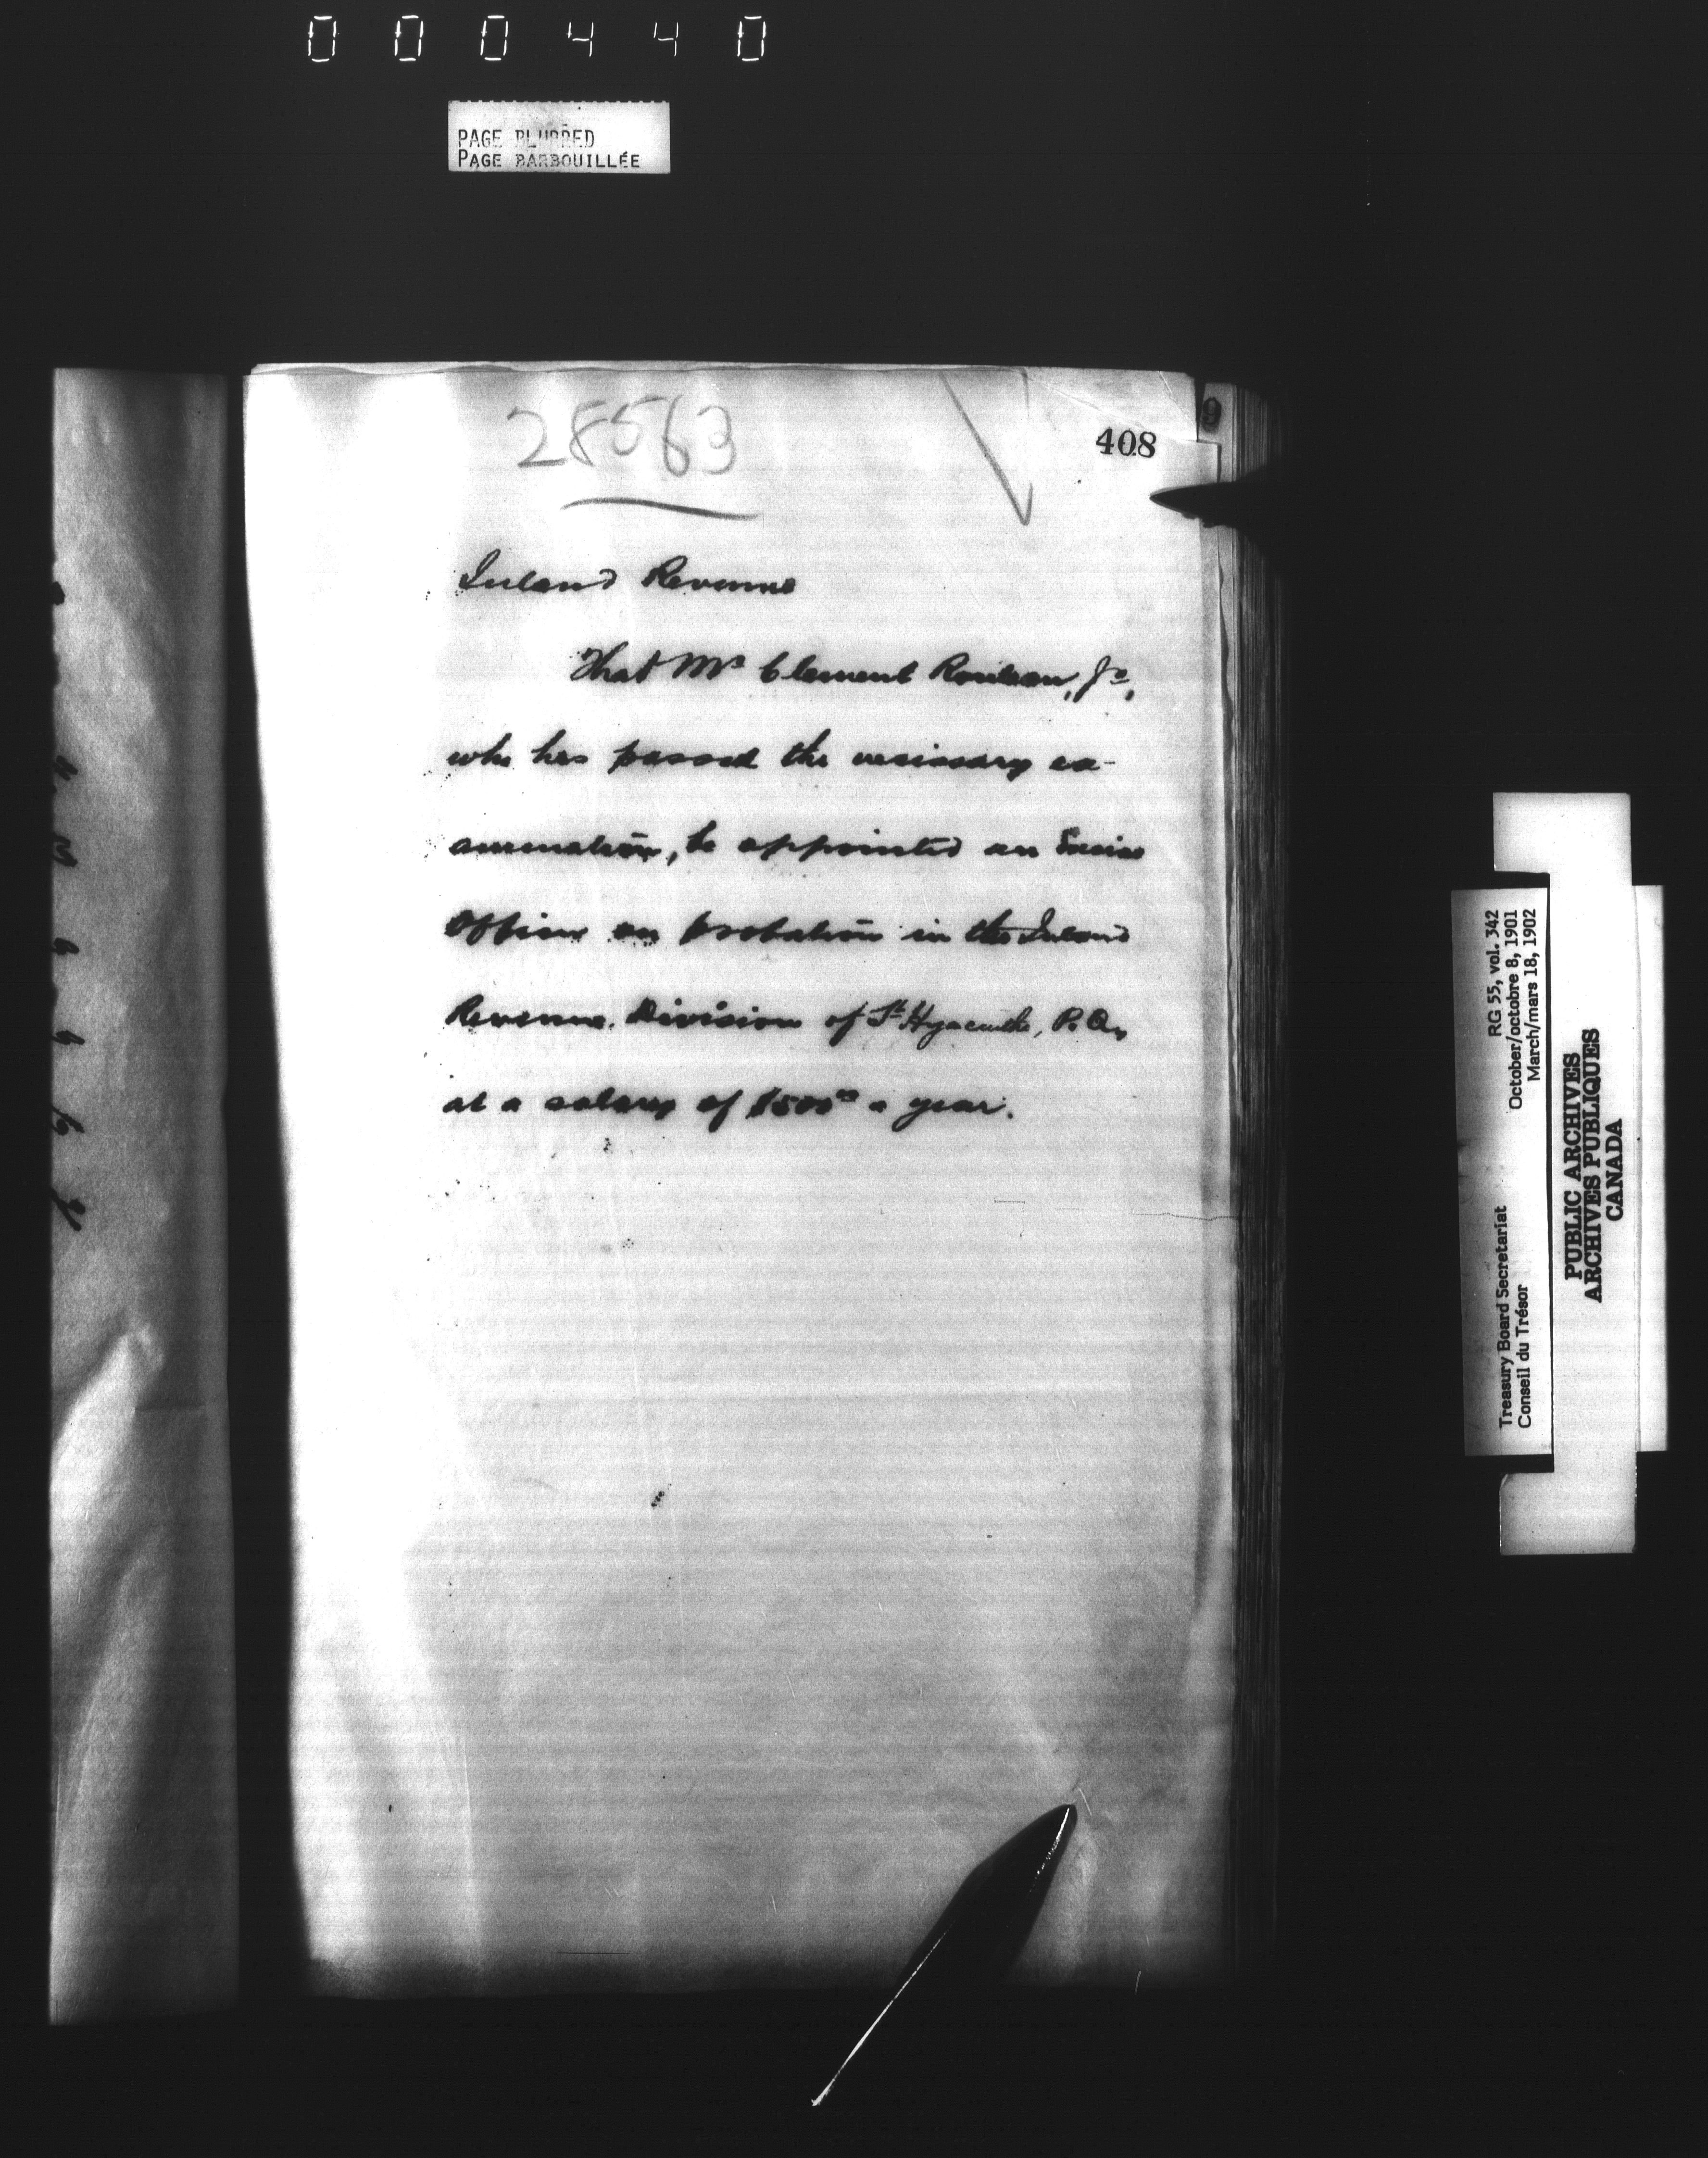 000440
PAGE BLURRED
PAGE BARBOUILLÉE
28563
408
Inland Revenue
That Mr Clement Rouleau, Jr,
who has passed the necessary ex-
amination, be appointed an Excise
Officer on probation in the Inland
Revenue Division of St Hyacinthe, P. Q.,
at a salary of $500 00 a year.
RG 55, vol. 342
October/octobre 8, 1901
March/mars 18, 1902
Treasury Board Secretariat
Conseil du Trésor
PUBLIC ARCHIVES
ARCHIVES PUBLIQUES
CANADA